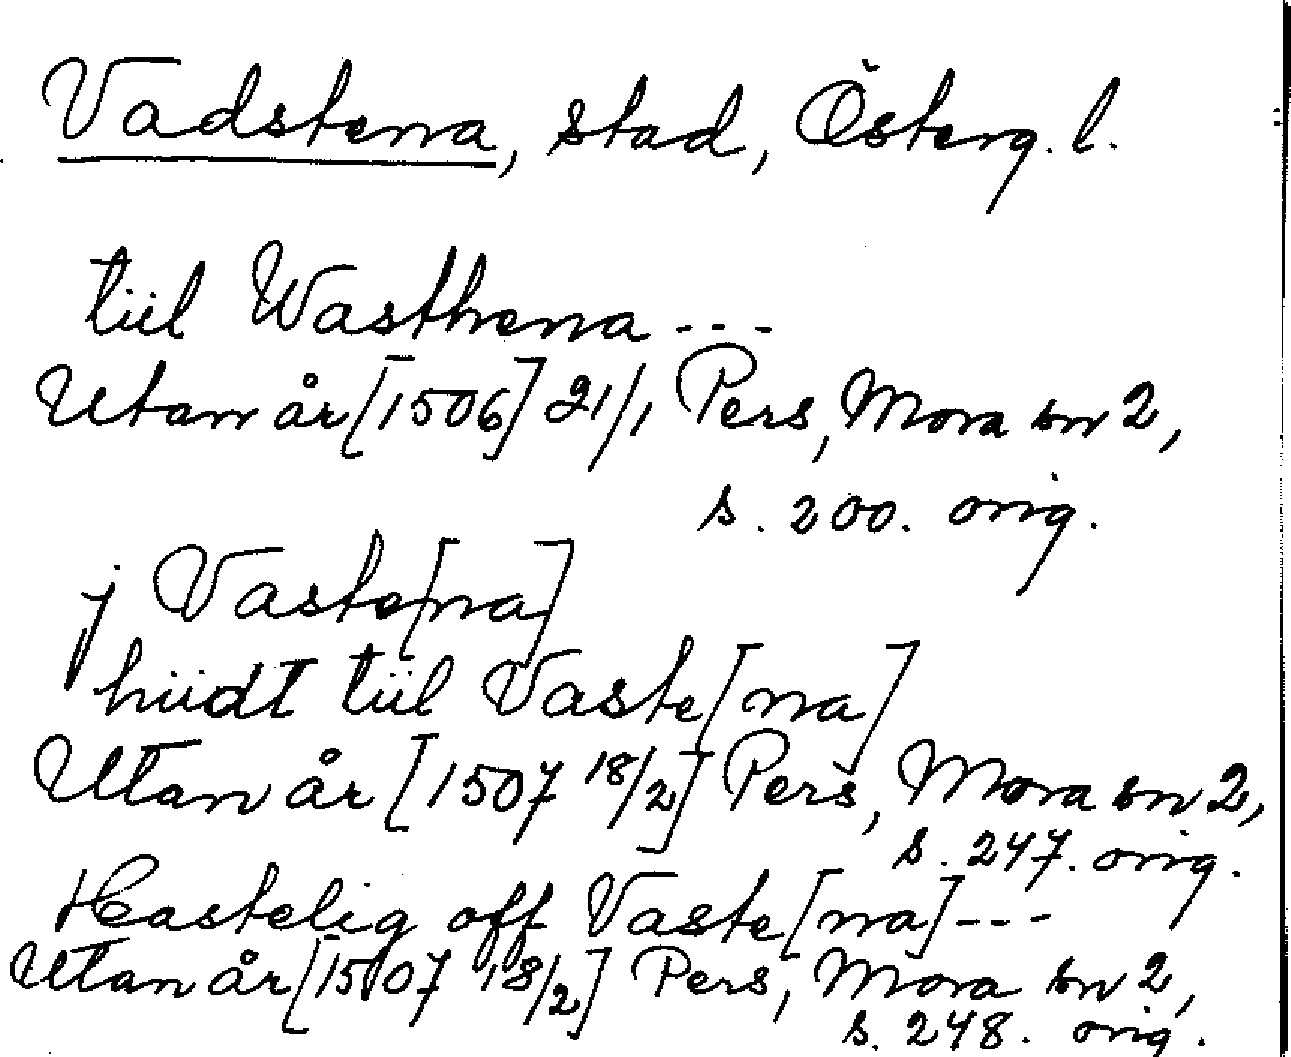 Vadstena, stad, Österg. l.
tiil Wasthena ---
Utan år [1506] 21/1 Pers, Mora sn 2,
s. 200. orig.
j Vaste[na]
hiidt tiil Vaste[na]
Utan år [1507 18/2] Pers, Mora sn 2,
s. 247. orig.
Hastelig off Vaste[na] ---
Utan år [1507 18/2] Pers, Mora sn 2,
s. 248. orig.